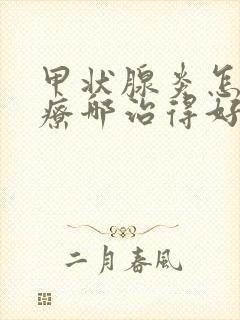 甲状腺炎怎
疗那治得好
二月春風